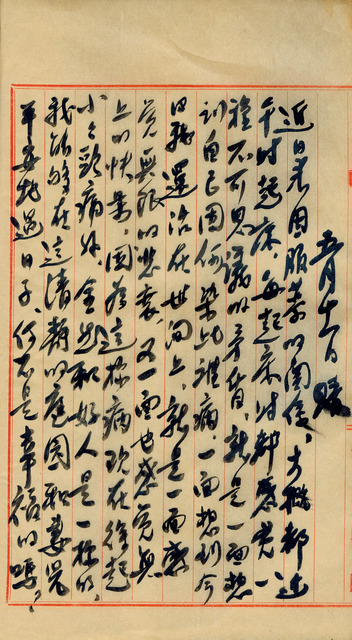 五月十一日 晴
近日来因服药的关系，大概都迟
午时起床，每起床时都感觉一
种不可思议的矛盾，就是一面想
到自己因何染此难病，一面想到今
日我还活在世间上，就是一面感
觉无限的悲哀，又一面也感觉无
上的快乐，因为这样病现在除起
小々头痛外全然和好人是一样的，
我能够在这清静的庭园和妻儿
平安地过日子，何不是幸福的吗？